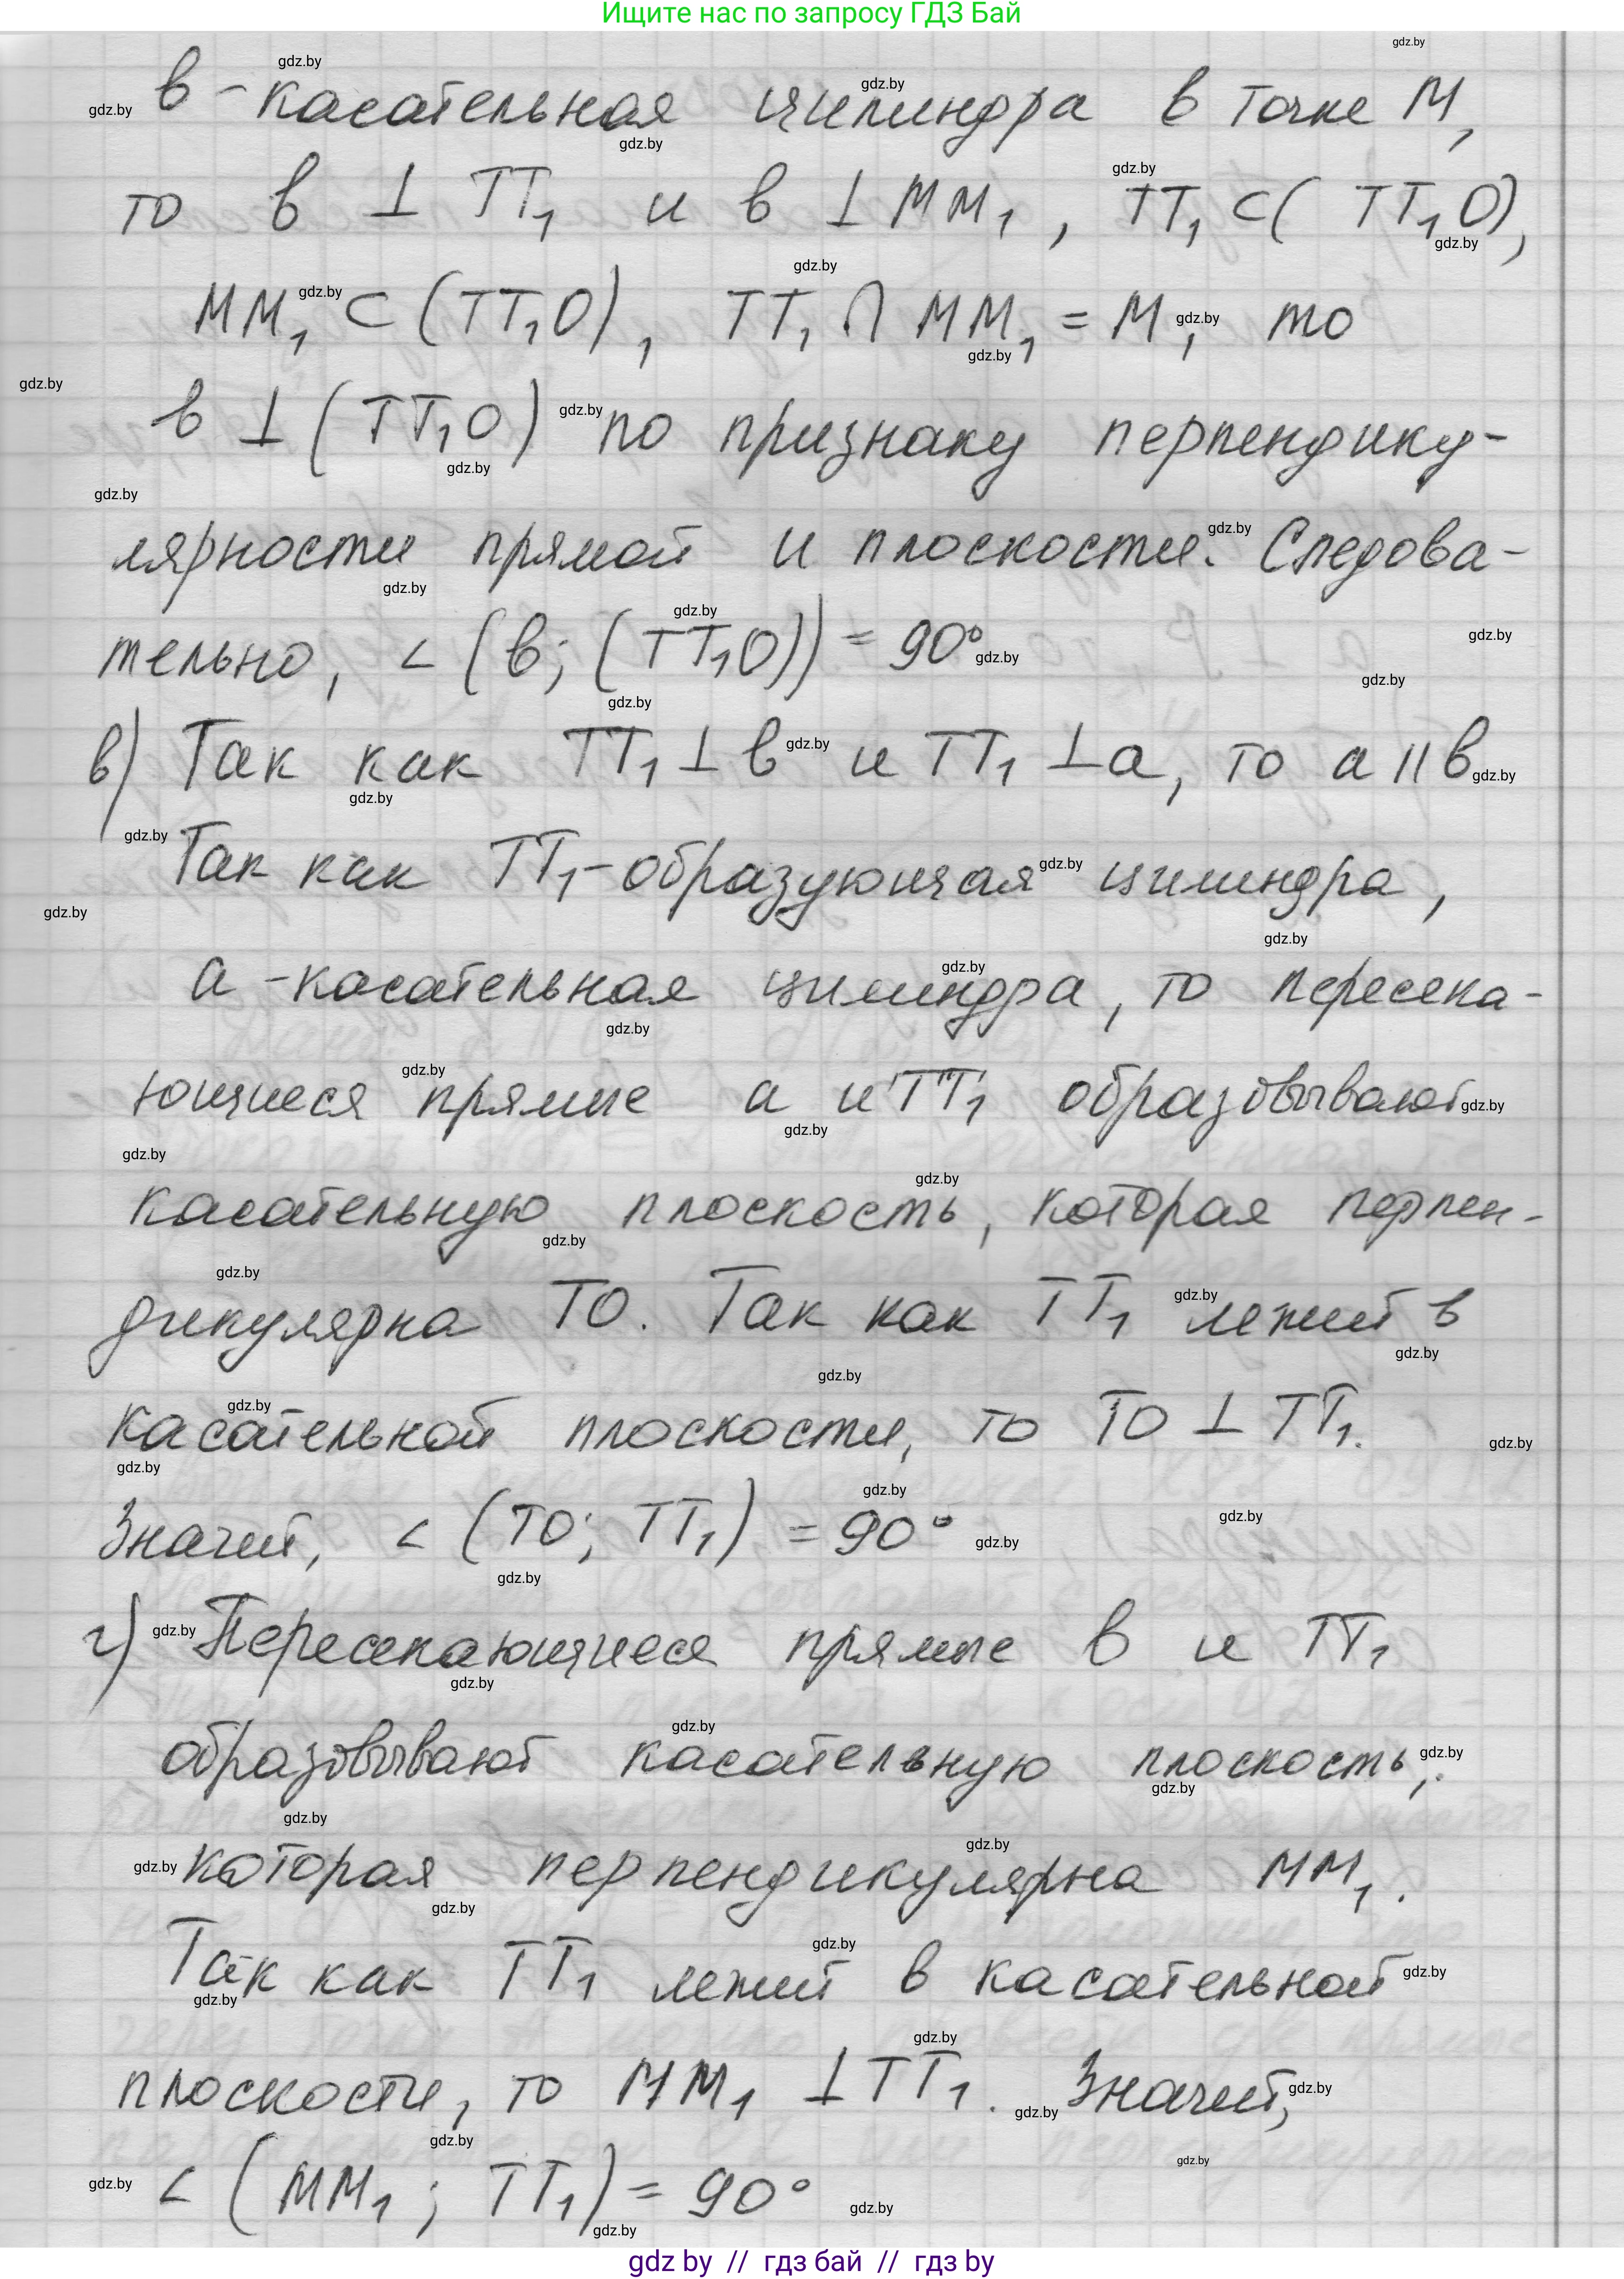 Ищите нас по запросу ГДЗ Бай
в - касательная цилиндра в точке М,
то в ⊥ TT₁ и в ⊥ MM₁, TT₁ ⊂ (TT₁O),
MM₁ ⊂ (TT₁O), TT₁ ∩ MM₁ = M, то
в ⊥ (TT₁O) по признаку перпендику-
лярности прямой и плоскости. Следова-
тельно, ∠(в; (TT₁O)) = 90°
в) Так как TT₁ ⊥ в и TT₁ ⊥ a, то a || в
Так как TT₁ - образующая цилиндра,
a - касательная цилиндра, то пересека-
ющиеся прямые a и TT₁ образовывают
касательную плоскость, которая перпен-
дикулярна TO. Так как TT₁ лежит в
касательной плоскости, то TO ⊥ TT₁.
Значит, ∠(TO; TT₁) = 90°
г) Пересекающиеся прямые в и TT₁
образовывают касательную плоскость,
которая перпендикулярна MM₁.
Так как TT₁ лежит в касательной
плоскости, то MM₁ ⊥ TT₁. Значит,
∠(MM₁; TT₁) = 90°
gdz by // гдз бай // гдз by